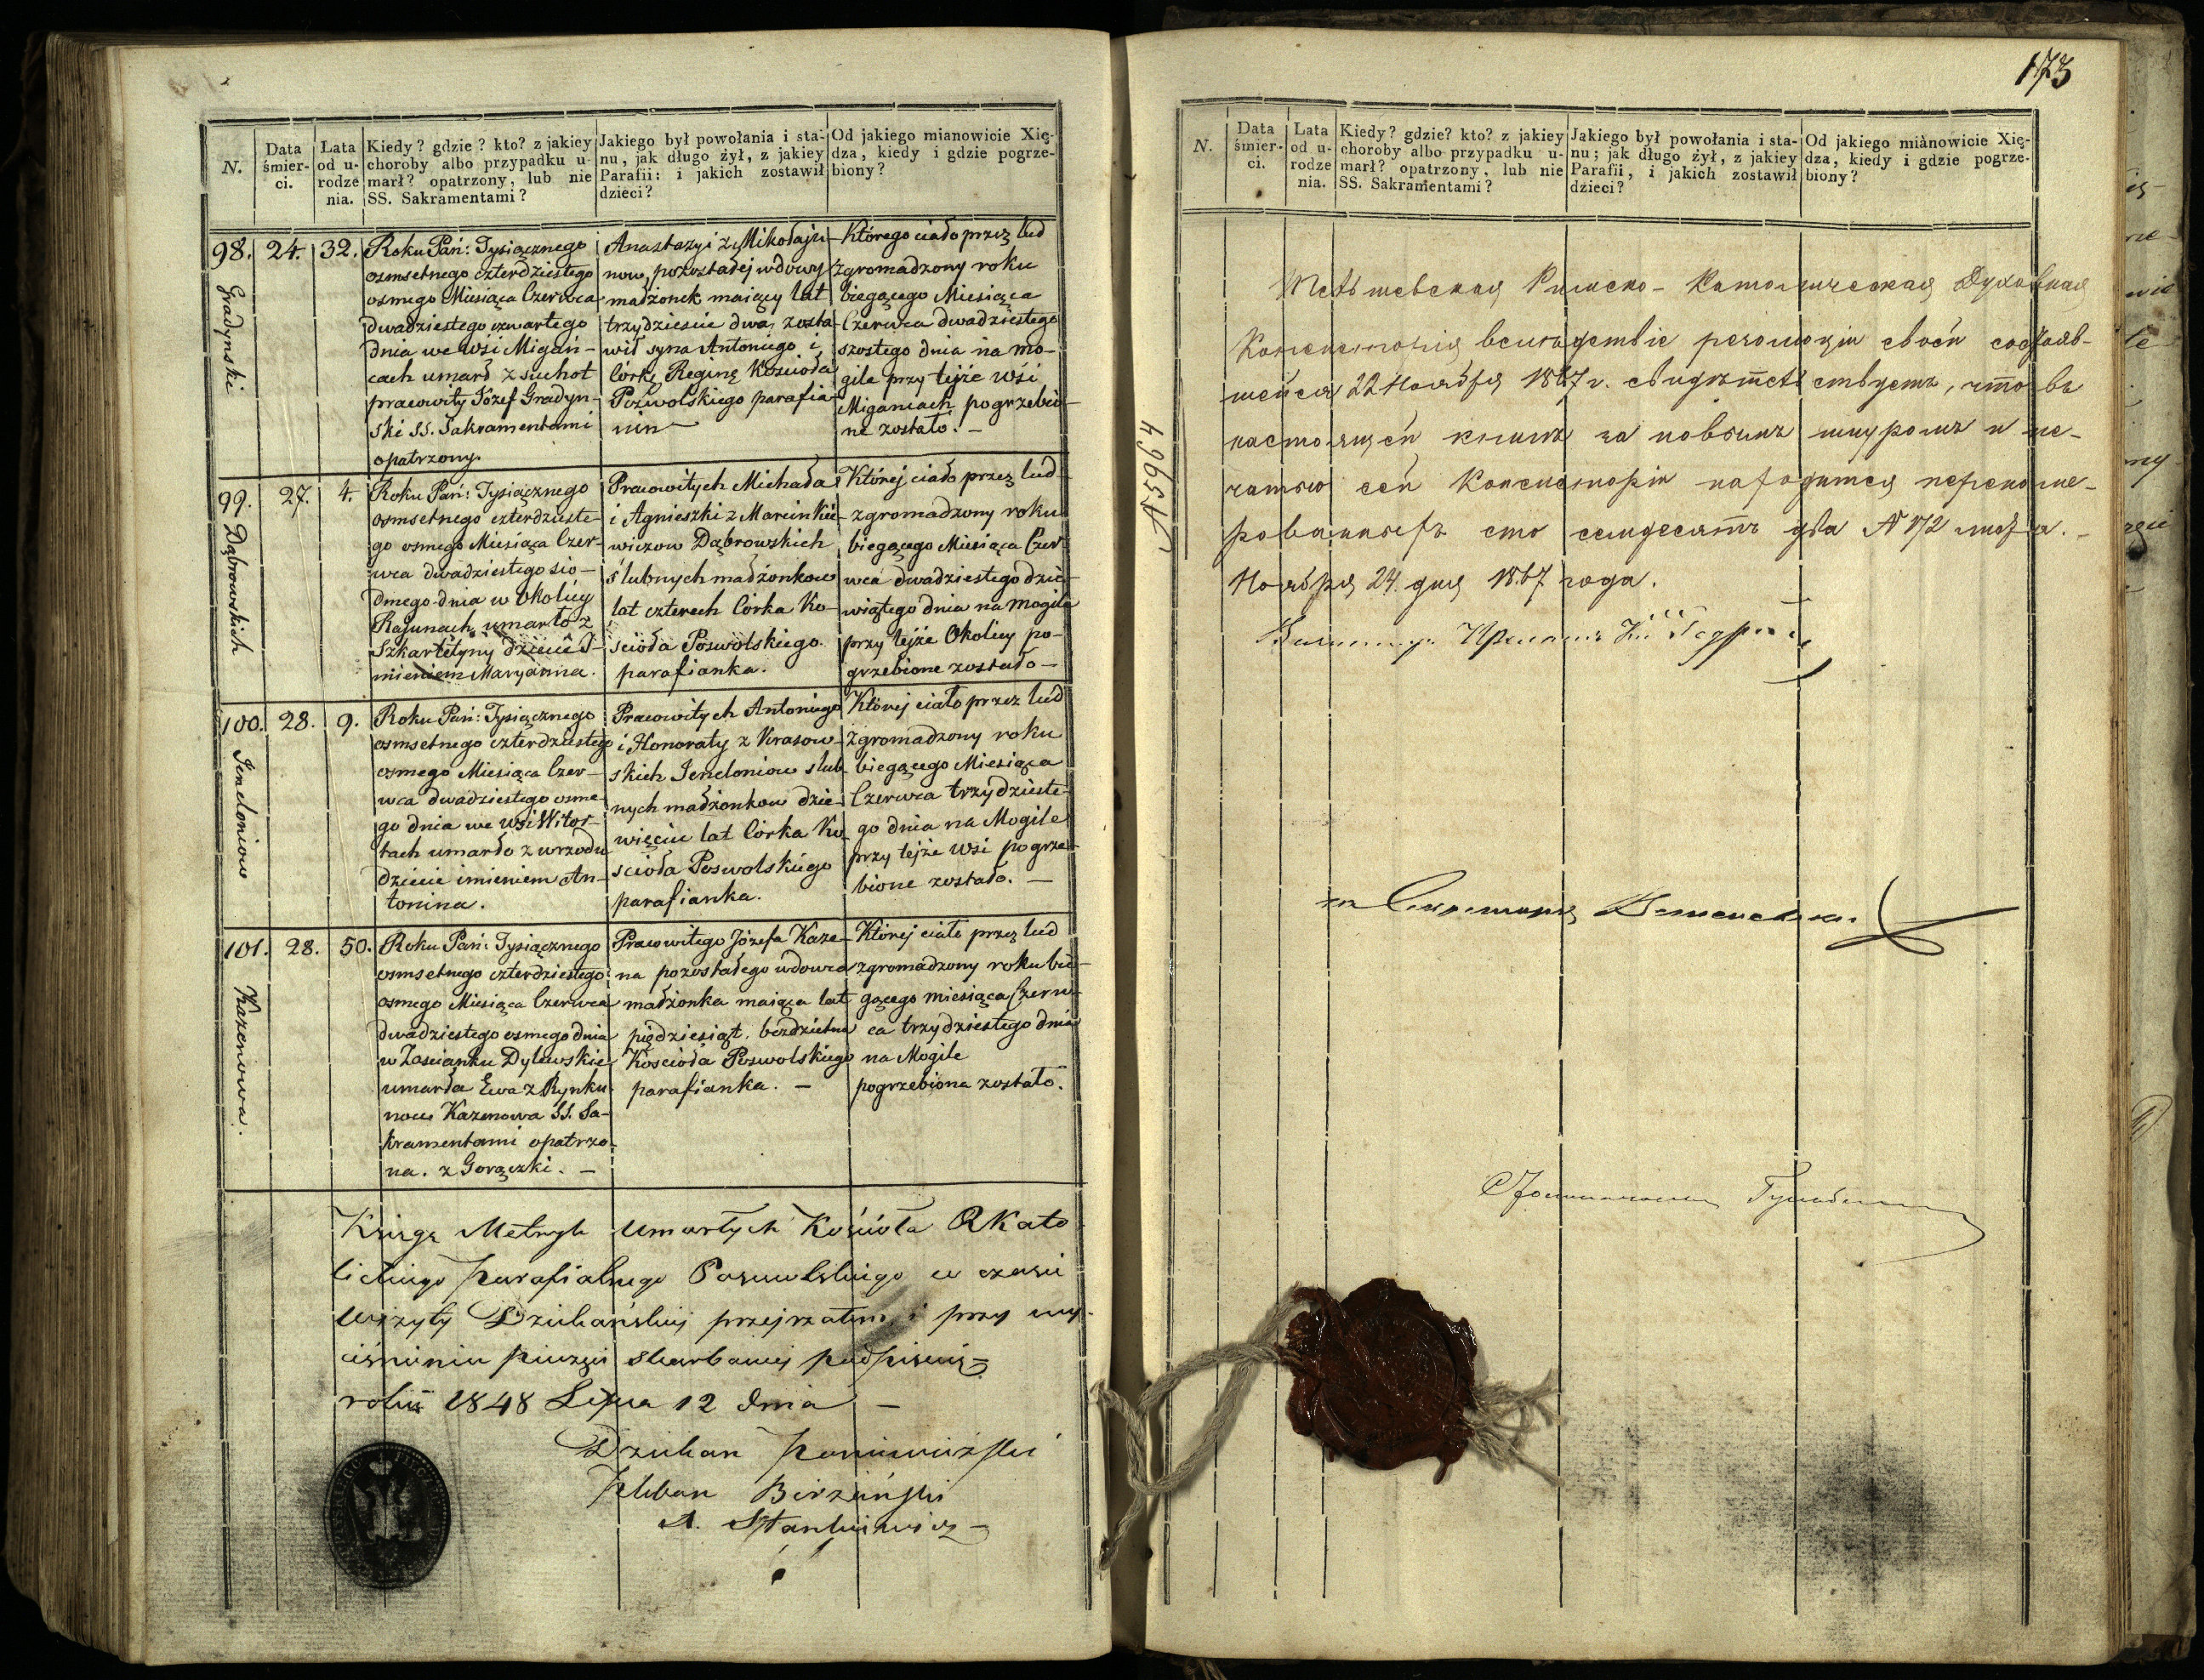 N.
Data
śmier-
ci.
Lata
od u-
rodze
nia.
Kiedy? gdzie? kto? z jakiey
choroby albo przypadku u-
marł? opatrzony, lub nie
SS. Sakramentami?
Jakiego był powołania i sta-
nu, jak długo żył, z jakiey
Parafii: i jakich zostawił
dzieci?
Od jakiego mianowicie Xię-
dza, kiedy i gdzie pogrze-
biony?
98.
Gradynski
24.
32.
Roku Pań: Tysiącznego
osmsetnego czterdziestego
osmego Miesiąca Czerwca
dwadziestego czwartego
dnia we wsi Migań-
cach umarł z suchot
pracowity Józef Gradyn-
ski SS. Sakramentami
opatrzony.
Anastazyi z Mikołaju-
now, pozostałej wdowy
małżonek maiący lat
trzydzieście dwa, zosta-
wił syna Antoniego i
Córkę Reginę Kościoła
Poswolskiego parafia-
nin
Którego ciało przez lud
zgromadzony roku
biegącego Miesiąca
Czerwca dwadziestego
szostego dnia na mo-
gile przy tejże wsi
Migancach pogrzebio-
ne zostało. -
99.
Dąbrowskich
27.
4.
Roku Pań: Tysiącznego
osmsetnego czterdzieste-
go osmego Miesiąca Czer-
wca dwadziestego sio-
dmego dnia w Okolicy
Rajunach umarło z
Szkarletyny dziecie I-
mieniem Maryanna.
Pracowitych Michała
i Agnieszki z Marcinkie-
wiczow Dąbrowskich
ślubnych małżonkow
lat czterech Córka Ko-
scioła Poswolskiego
parafianka.
Której ciało przez lud
zgromadzony roku
biegącego Miesiąca Czer-
wca dwadziestego dzie-
wiątego dnia na mogile
przy tejże Okolicy po-
grzebione zostało -
100.
Jendoniow
28.
9.
Roku Pań: Tysiącznego
osmsetnego czterdziestego
osmego Miesiąca Czer-
wca dwadziestego osme-
go dnia we wsi Witor-
tach umarło z wrzodu
dziecie imieniem An-
tonina.
Pracowitych Antoniego
i Honoraty z Krasow-
skich Jendoniow slub-
nych małżonkow dzie-
więciu lat Córka Ko-
scioła Poswolskiego
parafianka.
Której ciało przez lud
zgromadzony roku
biegącego Miesiąca
Czerwca trzydzieste-
go dnia na Mogile
przy tejże wsi pogrze-
bione zostało. -
101.
Kazenowa.
28.
50.
Roku Pań: Tysiącznego
osmsetnego czterdziestego
osmego Miesiąca Czerwca
dwadziestego osmego dnia
w Zascianku Dylewskie
umarła Ewa z Rynku-
now Kazenowa SS. Sa-
kramentami opatrzo-
na. z Gorączki. -
Pracowitego Józefa Kaze-
na pozostałego wdowca
małżonka maiąca lat
piędziesiąt. bezdzietna
Kościoła Poswolskiego
parafianka. -
Której ciało przez lud
zgromadzony roku bie-
gącego miesiąca Czerw-
ca trzydziestego dnia
na Mogile
pogrzebiona zostało.
Księgę Metryk Umarłych Kościoła RKato
lickiego Parafialnego Poswolskiego w czasie
Wizyty Dziekańskiej przejrzałem i przy wy-
ciśnieniu pieczęci skarbowej podpisuię
roku 1848 Lipca 12 dnia -
Dziekan Poniewieżski
Pleban Birżański
A. Stankiewicz
173
N.
Data
śmier-
ci.
Lata
od u-
rodze
nia.
Kiedy? gdzie? kto? z jakiey
choroby albo przypadku u-
marł? opatrzony, lub nie
SS. Sakramentami?
Jakiego był powołania i sta-
nu; jak długo żył, z jakiey
Parafii, i jakich zostawił
dzieci?
Od jakiego mianowicie Xię-
dza, kiedy i gdzie pogrze-
biony?
Тельшевская Римско-Католическая Духовная
Консисторія вслѣдствіе резолюціи своей состояв-
шейся 22 Ноября 1867 г. свидѣтельствуетъ, что въ
настоящей книгѣ за шнуромъ и пе-
чатью сей Консисторіи находится перенуме-
рованныхъ сто семдесятъ два № 172 листа. -
Ноября 24 дня 1867 года.